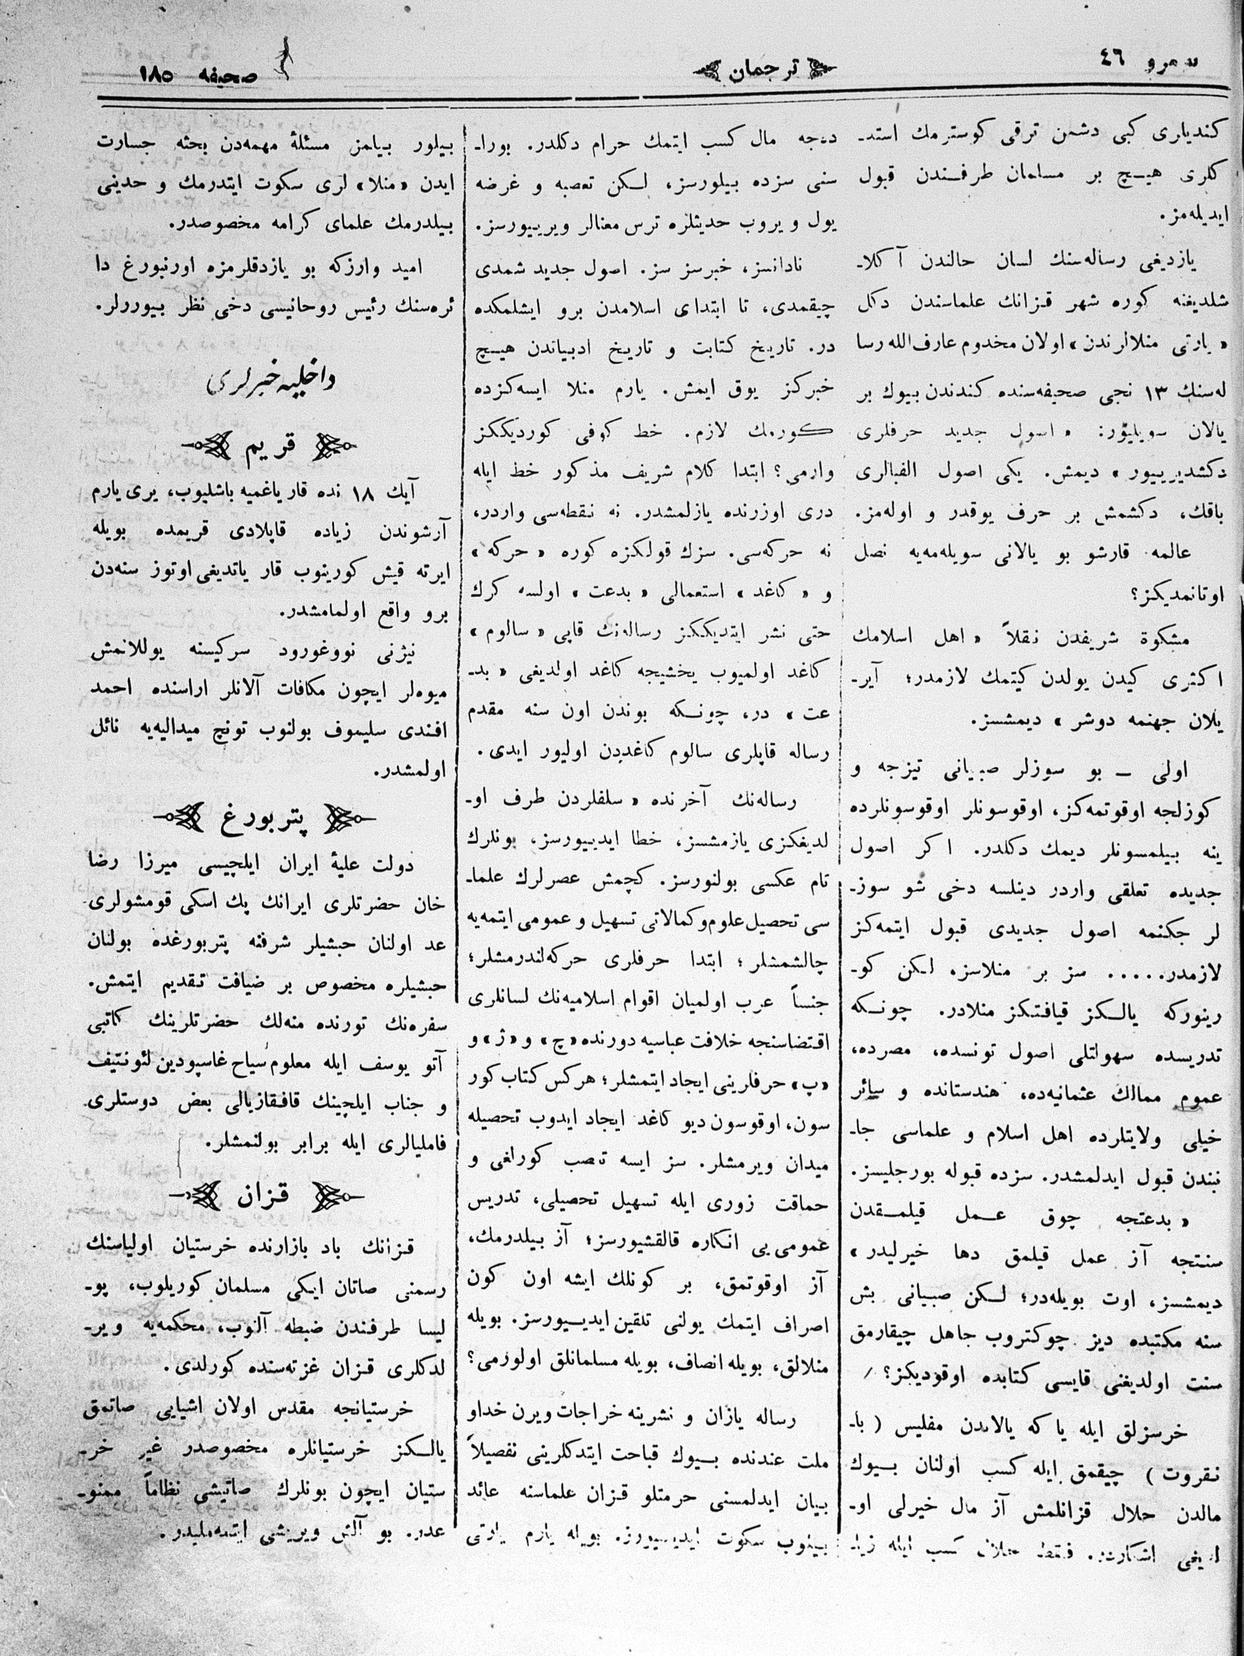 نومرو ٤٦
ترجمان
صحیفه ١٨٥
كندیلری كبی دشمن ترقی كوسترمك استد-
كلری هیچ بر مسلمان طرفندن قبول
ایدیلەمز.
یازدیغی رسالەسنك لسان حالندن آكلا-
شلدیغنه كوره شهر قزانك علماسندن دكل
« یارتی منلالرندن » اولان مخدوم عارف‌الله رسا
لەسنك ١٣ نجی صحیفەسنده كندندن بیوك بر
یالان سویلیۆر: « اصول جدید حرفلری
دكشدیرییور » دیمش. یكی اصول الفبالری
باقك، دكشمش بر حرف یوقدر و اولەمز.
عالمه قارشو بو یالانی سویلەمەیه نصل
اوتانمدیكز؟
مشكوة شریفدن نقلاً « اهل اسلامك
اكثری كیدن یولدن كیتمك لازمدر؛ آیر-
یلان جهنمه دوشر » دیمشسز.
اولی — بو سوزلر صبیانی تیزجه و
كوزلجه اوقوتمەكز، اوقوسونلر اوقوسونلرده
ینه بیلمسونلر دیمك دكلدر. اكر اصول
جدیده تعلقی واردر دینلسه دخی شو سوز-
لر جكنمه اصول جدیدی قبول ایتمەكز
لازمدر..... سز بر منلاسز، لكن كو-
رینوركه یالكز قیافتكز منلادر. چونكه
تدریسده سهولتلی اصول تونسده، مصرده،
عموم ممالك عثمانیەده، هندستانده و سائر
خیلی ولایتلرده اهل اسلام و علماسی جا-
نبندن قبول ایدلمشدر. سزده قبوله بورجلیسز.
« بدعتجه چوق عمل قیلمقدن
سنتجه آز عمل قیلمق دها خیرلیدر »
دیمشسز، اوت بویلەدر؛ لكن صبیانی بش
سنه مكتبده دیز چوكتروب جاهل چیقارمق
سنت اولدیغنی قایسی كتابده اوقودیكز؟
خرسزلق ایله یاكه یالاندن مفلیس ( با-
نقروت ) چیقمق ایله كسب اولنان بیوك
مالدن حلال قزانلمش آز مال خیرلی او-
لدیغی اشكاردر. فقط حلال كسب ایله زیا-
دەجه مال كسب ایتمك حرام دكلدر. بورا-
سنی سزده بیلورسز، لكن تعصبه و غرضه
یول ویروب حدیثلره ترس معنالر ویرییورسز.
نادانسز، خبرسز سز. اصول جدید شمدی
چیقمدی، تا ابتدای اسلامدن برو ایشلمكده
در. تاریخ كتابت و تاریخ ادبیاتدن هیچ
خبركز یوق ایمش. یارم منلا ایسەكزده
كورمك لازم. خط كوفی كوردیككز
وارمی؟ ابتدا كلام شریف مذكور خط ایله
دری اوزرنده یازلمشدر. نه نقطەسی واردر،
نه حركەسی. سزك قولكزه كوره « حركه »
و « كاغد » استعمالی « بدعت » اولسه كرك
حتی نشر ایتدیككز رسالەنك قابی « سالوم »
كاغد اولمیوب یخشیجه كاغد اولدیغی « بد-
عت » در، چونكه بوندن اون سنه مقدم
رساله قاپلری سالوم كاغددن اولیور ایدی.
رسالەنك آخرنده « سلفلردن طرف او-
لدیغكزی یازمشسز، خطا ایدییورسز، بونلرك
تام عكسی بولنورسز. كچمش عصرلرك علما-
سی تحصیل علوم وكمالاتی تسهیل و عمومی ایتمەیه
چالشمشلر؛ ابتدا حرفلری حركەلندرمشلر؛
جنساً عرب اولمیان اقوام اسلامیەنك لسانلری
اقتضاسنجه خلافت عباسیه دورنده «چ» و «ژ» و
«پ» حرفلرینی ایجاد ایتمشلر؛ هركس كتاب كور
سون، اوقوسون دیو كاغد ایجاد ایدوب تحصیله
میدان ویرمشلر. سز ایسه تعصب كورلغی و
حماقت زوری ایله تسهیل تحصیلی، تدریس
عمومی‌یی انكاره قالقشیورسز؛ آز بیلدرمك،
آز اوقوتمق، بر كونلك ایشه اون كون
اصراف ایتمك یولنی تلقین ایدییورسز. بویله
منلالق، بویله انصاف، بویله مسلمانلق اولورمی؟
رساله یازان و نشرینه خراجات ویرن خداو
ملت عندنده بیوك قباحت ایتدكلرینی تفصیلاً
بیان ایدلمسنی حرمتلو قزان علماسنه عائد
بیلوب سكوت ایدییورز. بویله یارم یارتی
بیلور بیلمز مسئلهٔ مهمەدن بحثه جسارت
ایدن «منلا» لری سكوت ایتدرمك و حدینی
بیلدرمك علمای كرامه مخصوصدر.
امید واركه بو یازدقلرمزه اورنبورغ دا
ئرەسنك رئیس روحانیسی دخی نظر بیوررلر.
داخلیه خبرلری
قریم
آیك ١٨ نده قار یاغمیه باشلیوب، یری یارم
آرشوندن زیاده قاپلادی قریمده بویله
ایرته قیش كورینوب قار یاتدیغی اوتوز سنەدن
برو واقع اولمامشدر.
نیژنی نووغورود سركیسنه یوللانمش
میوەلر ایچون مكافات آلانلر اراسنده احمد
افندی سلیموف بولنوب تونچ میدالیەیه نائل
اولمشدر.
پتربورغ
دولت علیهٔ ایران ایلچیسی میرزا رضا
خان حضرتلری ایرانك پك اسكی قومشولری
عد اولنان حبشیلر شرفنه پتربورغده بولنان
حبشیلره مخصوص بر ضیافت تقدیم ایتمش.
سفرەنك تورنده منەلك حضرتلرینك كاتبی
آتو یوسف ایله معلوم سیاح غاسپودین لئونتیف
و جناب ایلچینك قافقازیالی بعض دوستلری
فامليالری ایله برابر بولنمشلر.
قزان
قزانك باد بازارنده خرستیان اولیاسنك
رسمنی صاتان ایكی مسلمان كوریلوب، پو-
لیسا طرفندن ضبطه آلنوب، محكمەیه ویر-
لدكلری قزان غزتەسنده كورلدی.
خرستیانجه مقدس اولان اشیایی صاتمق
یالكز خرستیانلره مخصوصدر غیر خر-
ستیان ایچون بونلرك صاتیشی نظاماً ممنو-
عدر. بو آلش ویریشی ایتمەملیدر.